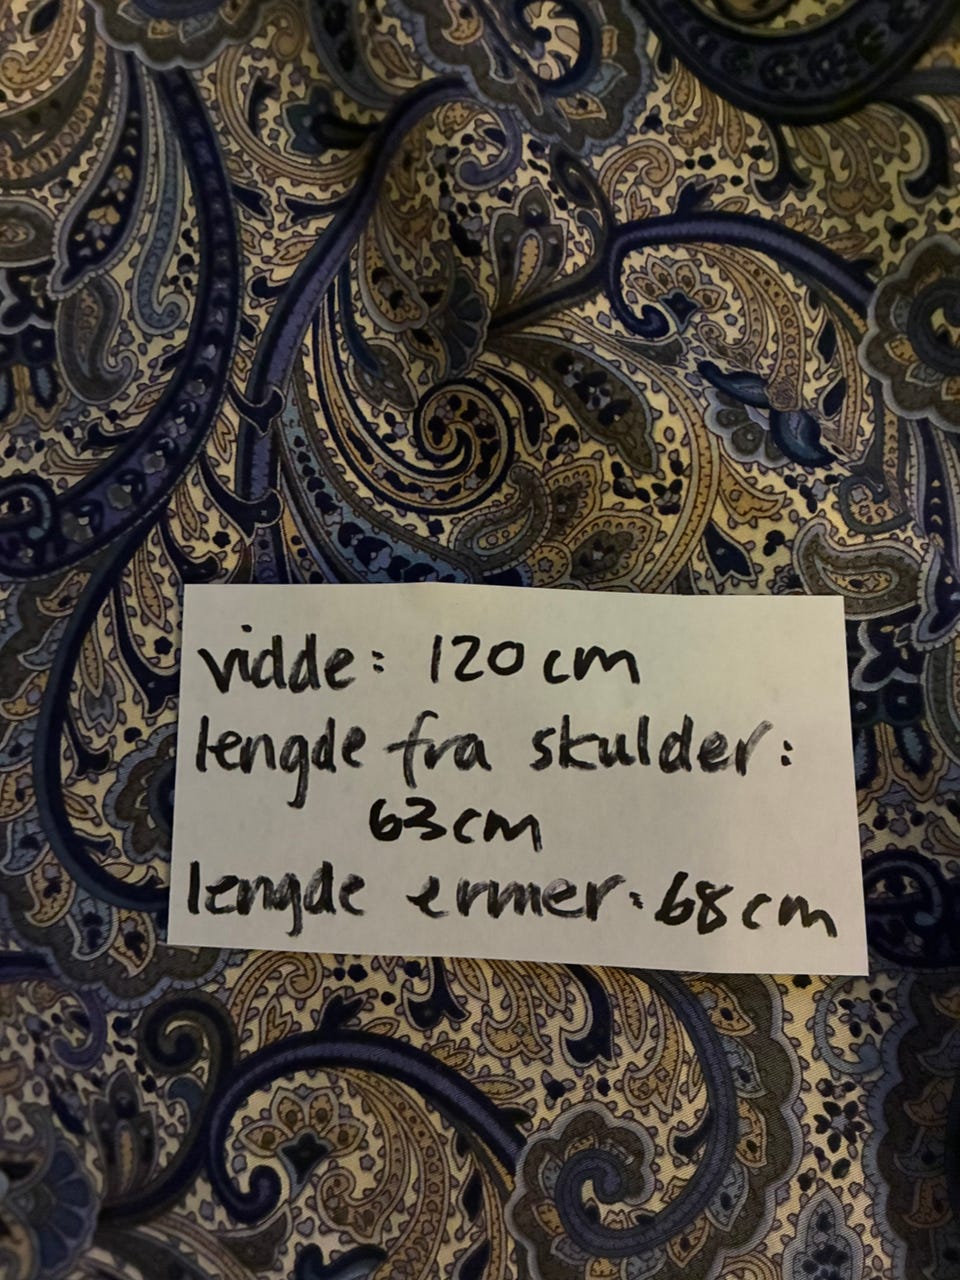 vidde: 120 cm
lengde fra skulder:
63 cm
lengde ermer: 68 cm